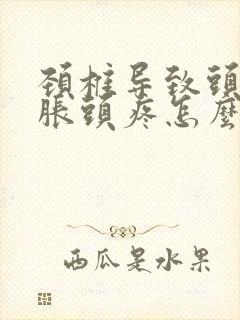 頚柱导致頭
脹頭疼怎麼
西瓜是水果